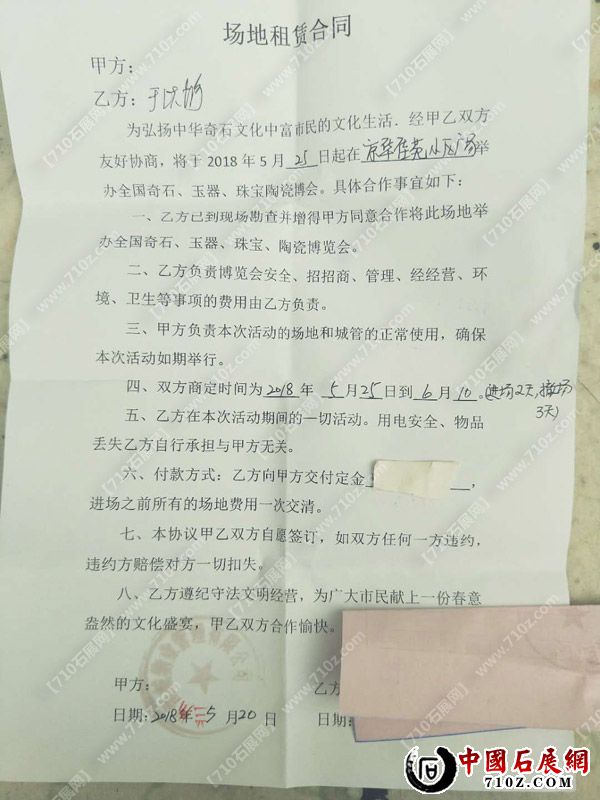 场地租赁合同
甲方：
乙方：
为弘扬中华奇石文化中富市民的文化生活．经甲乙双方
友好协商，将于2018年5月25日起在京华佳苑小区广场举
办全国奇石、玉器、珠宝陶瓷博会。具体合作事宜如下：
一、乙方已到现场勘查并增得甲方同意合作将此场地举
办全国奇石、玉器、珠宝、陶瓷博览会。
二、乙方负责博览会安全、招招商、管理、经经营、环
境、卫生等事项的费用由乙方负责。
三、甲方负责本次活动的场地和城管的正常使用，确保
本次活动如期举行。
四、双方商定时间为2018年5月25日到6月10。(进场2天,撤场
3天)
五、乙方在本次活动期间的一切活动。用电安全、物品
丢失乙方自行承担与甲方无关。
六、付款方式：乙方向甲方交付定金，
进场之前所有的场地费用一次交清。
七、本协议甲乙双方自愿签订，如双方任何一方违约，
违约方赔偿对方一切扣失。
八、乙方遵纪守法文明经营，为广大市民献上一份春意
盎然的文化盛宴，甲乙双方合作愉快。
甲方： 乙
日期：2018年5月20日 日期：
【710石展网】
www.710z.com
中國石展網
710Z.COM